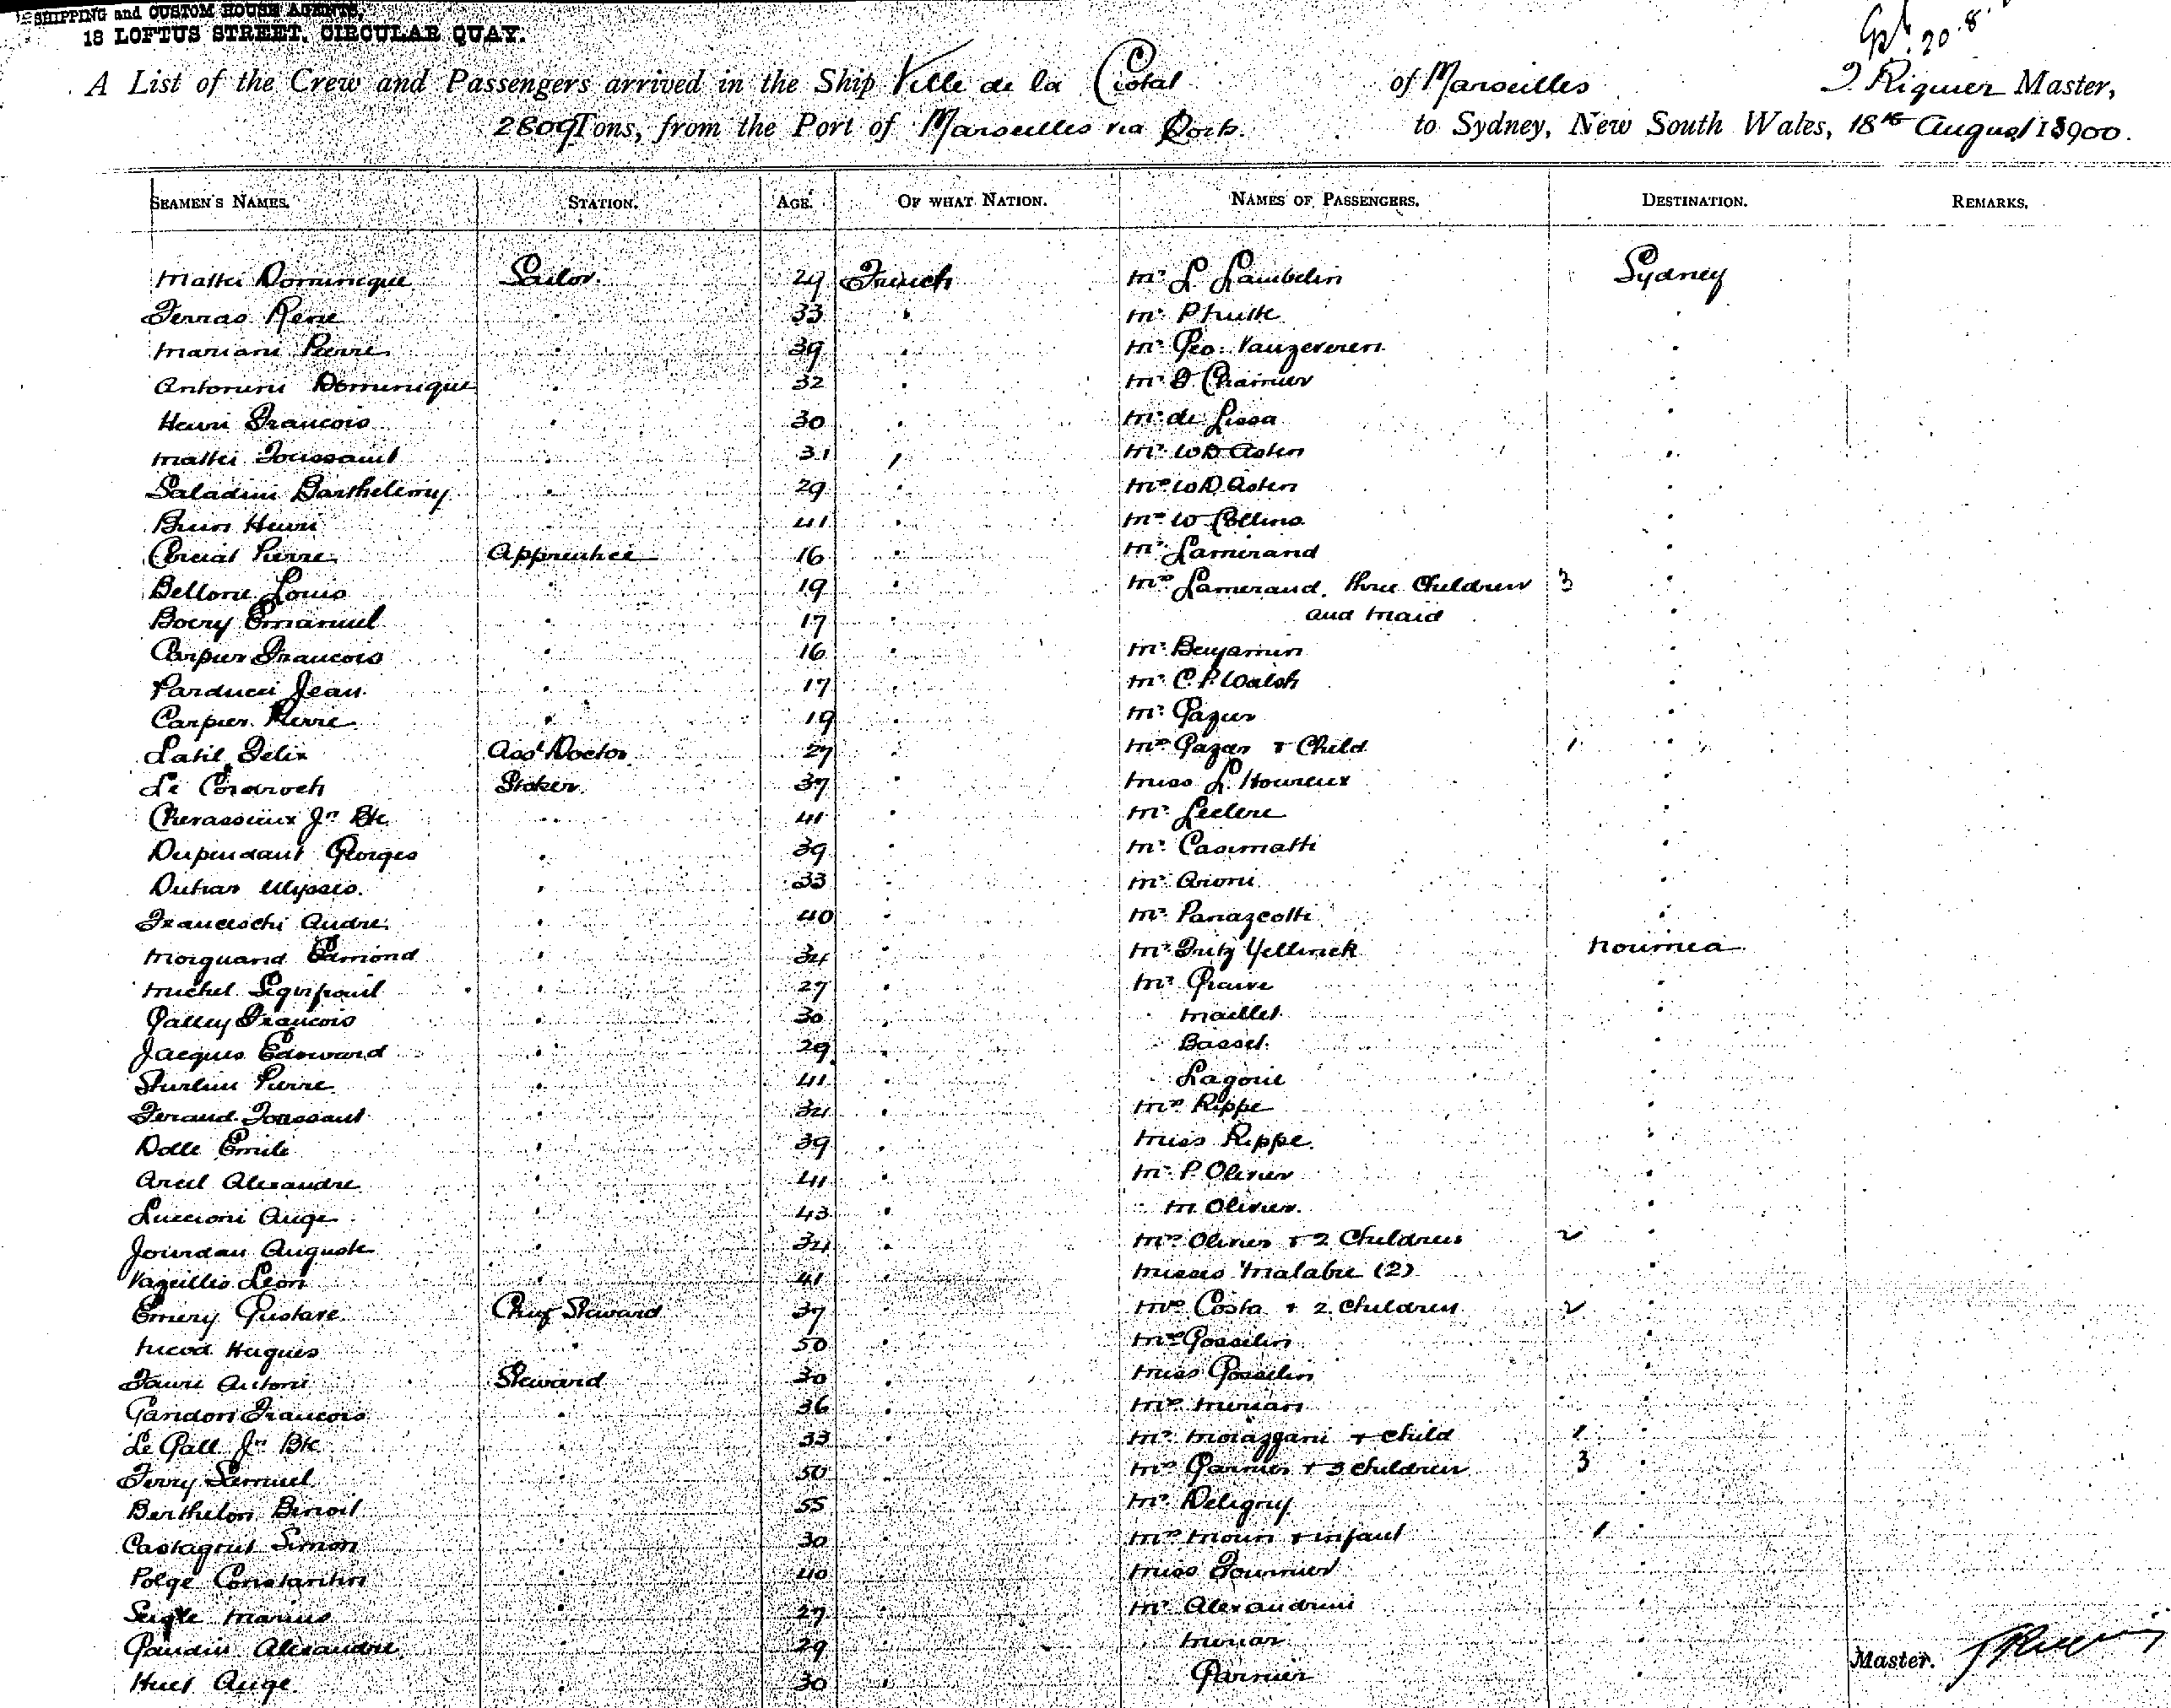 SHIPPING and CUSTOM HOUSE AGENTS,
18 LOFTUS STREET, CIRCULAR QUAY.
20.8.
A List of the Crew and Passengers arrived in the Ship Ville de la Ciotat of Marseilles Riquier Master,
2809 Tons, from the Port of Marseilles via Ports. to Sydney, New South Wales, 18th August 1900.
SEAMEN'S NAMES. STATION. AGE. OF WHAT NATION. NAMES OF PASSENGERS. DESTINATION. REMARKS.
Mattei Dominique Sailor. 29 French Mr. L. Lambelin Sydney
Ferras Rene " 33 " Mr. "
Mariani Pierre " 39 " Mr. Geo. Vanzeveren "
Antonini Dominique " 32 " Mr. Charrier "
Henri Francois " 30 " Mr. de Lissa "
Mattei Toussaint " 31 " Mr. W D Asten "
Saladini Barthelemy " 29 " Mrs W D Asten "
Brun Henri " 41 " Mrs W Collins "
Pierre Apprentice 16 " Mr. Lamerand "
Bellone Louis " 19 " Mrs Lamerand, three Children 3 "
Boery Emanuel " 17 " and Maid "
Carpier Francois " 16 " Mr. Benjamin "
Parducci Jean " 17 " Mr. C. P. Walsh "
Carpier Pierre " 19 " Mr. "
Latil Felix Asst Doctor 27 " Mrs Gazan & Child 1 "
Le Stoker 37 " Miss L'Heureux "
Jn Bte " 41 " Mr. Leclerc "
Dependant Georges " 39 " Mr. Casimatti "
Ulysses " 33 " Mr. Arioni "
Franceschi Andre " 40 " Mr. "
Morquand Edmond " 34 " Mr. Fritz Yellinek Noumea
Michel " 27 " Mr. "
Galley Francois " 30 " " Maillet "
Jacques Edouard " 29 " " Basset "
Sturlini Pierre " 41 " " Lagoue "
Feraud Toussaint " 34 " Mrs Rippe "
Dolle Emile " 39 " Miss Rippe "
Alexandre " 41 " Mr. P. Olivier "
Luccioni Ange " 43 " " M. Olivier "
Jourdan Auguste " 34 " Mrs Olivier & 2 Children 2 "
Leon " 41 " Misses Malabre (2) "
Emery Gustave Chief Steward 37 " Mrs Costa & 2 Children 2 "
Hugues " 50 " Mrs Gosselin "
Faure Antoine Steward 30 " Miss Gosselin "
Gandon Francois " 36 " Mrs "
Le Gall Jn Bte " 33 " Mr. Morazzani & Child 1 "
Ferry Samuel " 50 " Mrs Garnier & 3 Children 3 "
Berthelon Benoit " 55 " Mr. Deligny "
Simon " 30 " Mrs & infant 1 "
Polge Constantin " 40 " Miss Fournier "
Marius " 27 " Mr. Alexandrini "
Gaudin Alexandre " 29 " " "
Huet Ange " 30 " " Garnier "
Master.